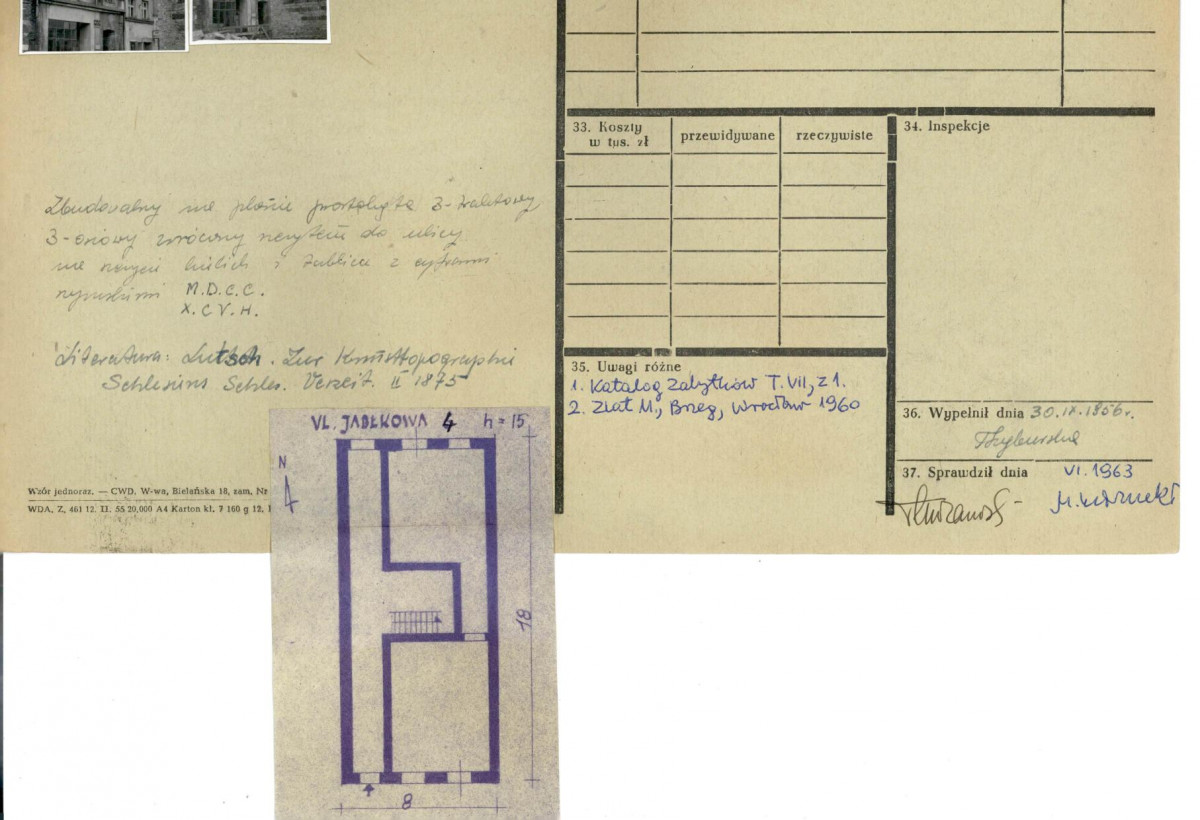 Zbudowany na planie prostokąta 3-traktowy
3-osiowy zwrócony szczytem do ulicy
na szczycie kielich i tablica z cyframi
rzymskimi M.D.C.C.
X.C V.H.
Literatura: Lutsch. Zur Kunsttopographie
Schlesiens Schles. Vorzeit. II 1875
Wzór jednoraz. — CWD, W-wa, Bielańska 18, zam. Nr
WDA, Z, 461 12. II. 55 20,000 A4 Karton kl. 7 160 g 12,
UL. JABŁKOWA 4 h=15
N
18
8
33. Koszty
w tys. zł
przewidywane
rzeczywiste
34. Inspekcje
35. Uwagi różne
1. Katalog Zabytków T. VII, z 1.
2. Zlat M., Brzeg, Wrocław 1960
36. Wypełnił dnia 30.IX.1956r.
37. Sprawdził dnia VI. 1963